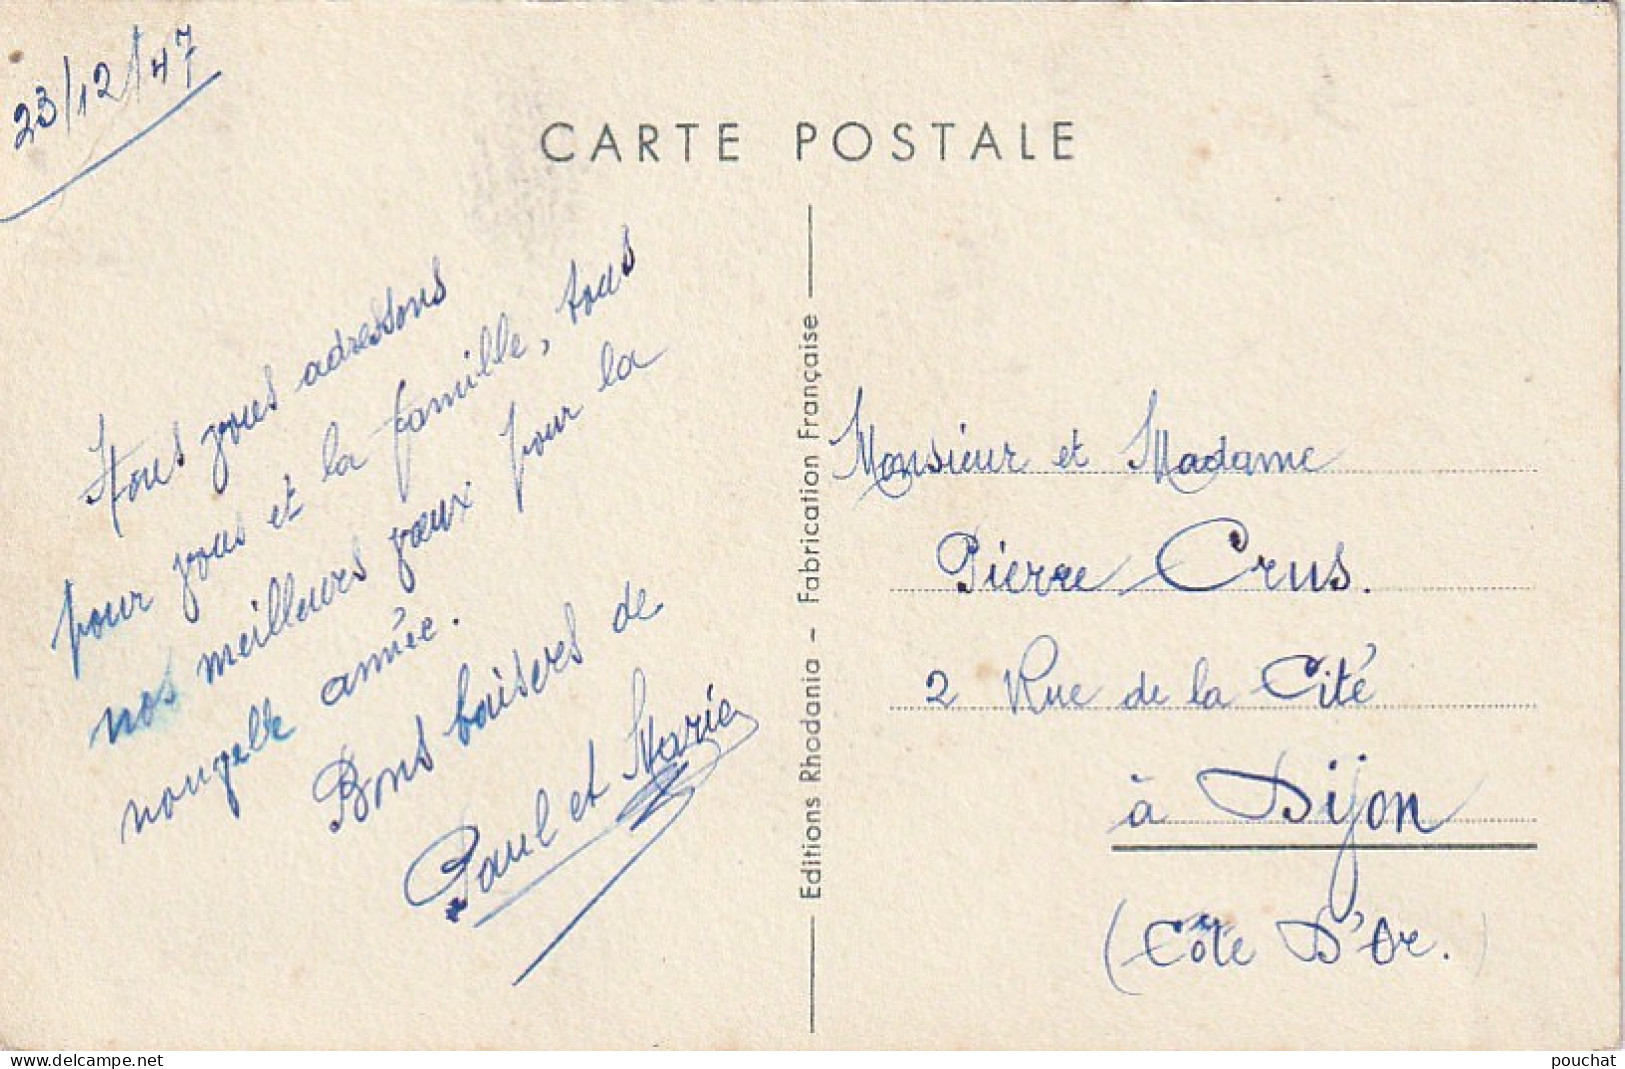 23/12/47
CARTE POSTALE
Nous vous adressons
pour vous et la famille, tous
nos meilleurs vœux pour la
nouvelle année.
Bons baisers de
Paul et Marie
Editions Rhodania - Fabrication Française
Monsieur et Madame
Pierre Crus.
2 Rue de la Cité
à Dijon
(Côte D'Or.)
www.delcampe.net
pouchat